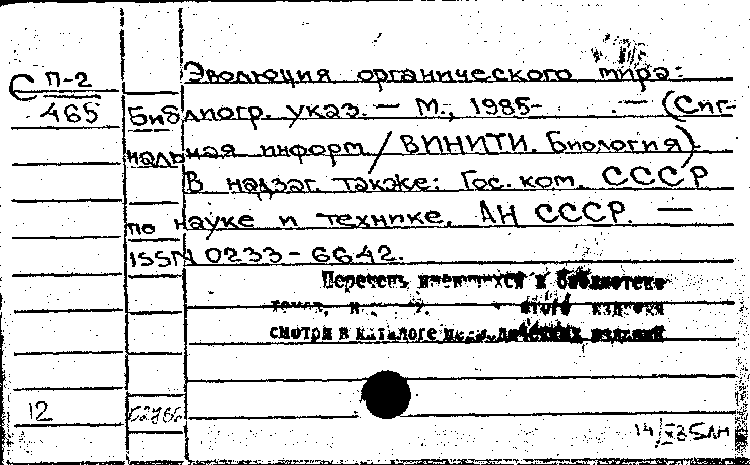 С П-2
465
Эволюция органического мира:
Библиогр. указ. — М., 1985- . — (Сиг-
нальная информ. / ВИНИТИ. Биология).
В надзаг. также: Гос. ком. СССР
по науке и технике, АН СССР. —
ISSN 0233-6642.
Перечень имеющихся в библиотеке
томов, этого издания
смотри в каталоге периодических изданий
12